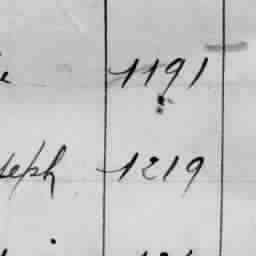 1191
seph 1219